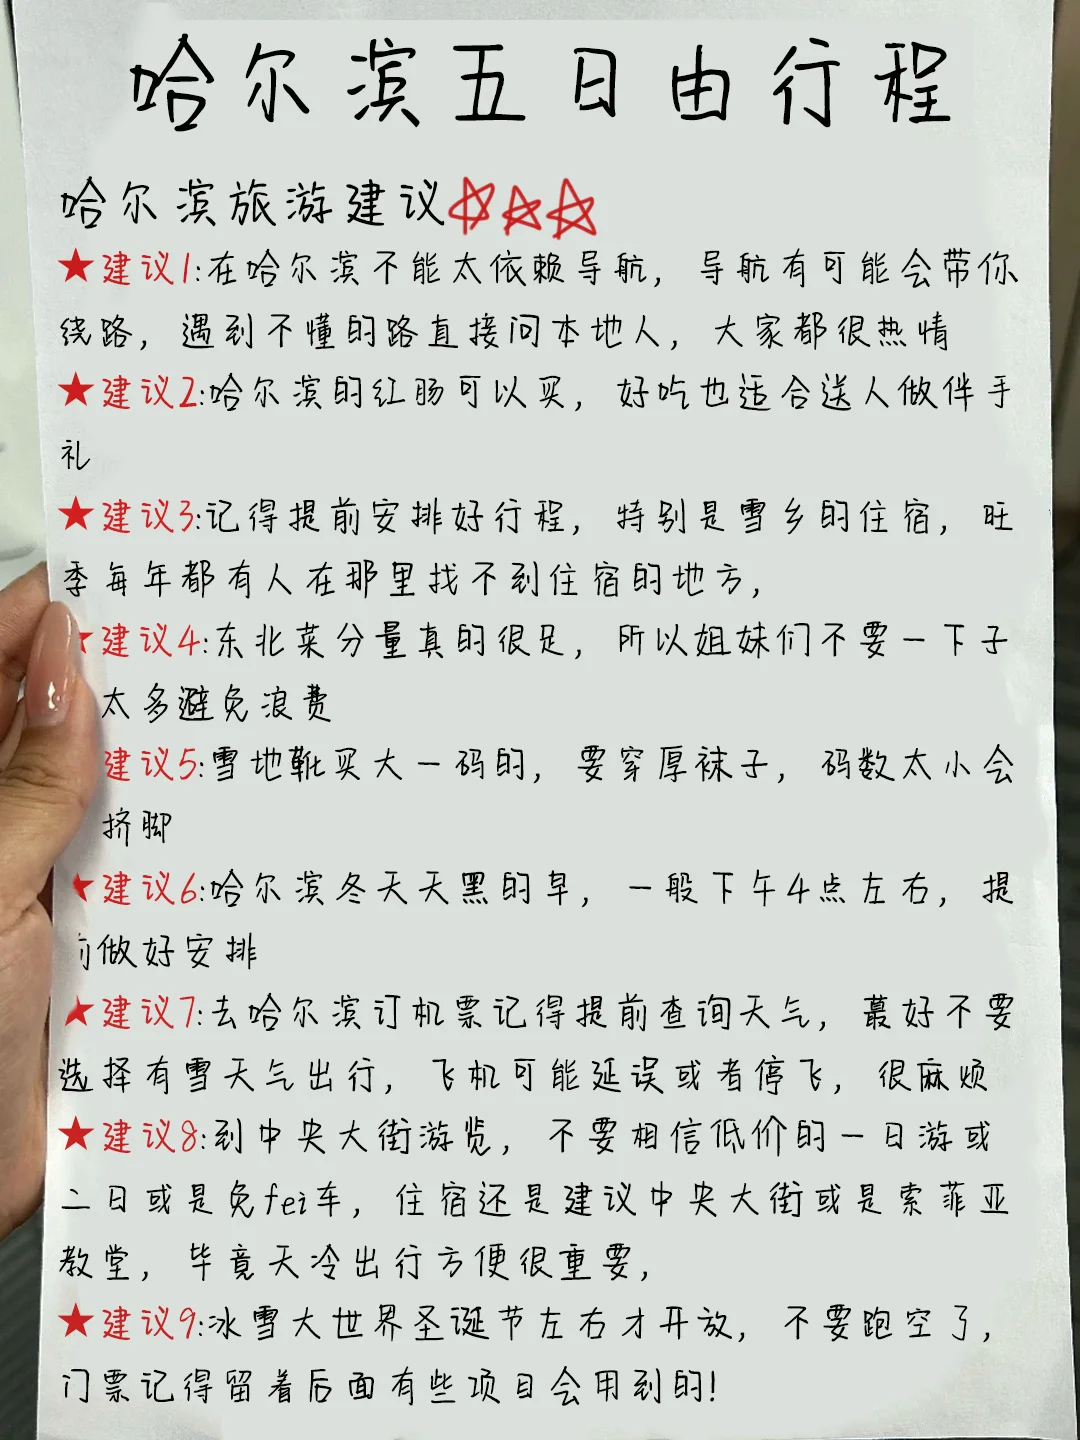 哈尔滨五日由行程
哈尔滨旅游建议
★建议1:在哈尔滨不能太依赖导航，导航有可能会带你
绕路，遇到不懂的路直接问本地人，大家都很热情
★建议2:哈尔滨的红肠可以买，好吃也适合送人做伴手
礼
★建议3:记得提前安排好行程，特别是雪乡的住宿，旺
季每年都有人在那里找不到住宿的地方，
★建议4:东北菜分量真的很足，所以姐妹们不要一下子
太多避免浪费
建议5:雪地靴买大一码的，要穿厚袜子，码数太小会
挤脚
★建议6:哈尔滨冬天天黑的早，一般下午4点左右，提
前做好安排
★建议7:去哈尔滨订机票记得提前查询天气，蕞好不要
选择有雪天气出行，飞机可能延误或者停飞，很麻烦
★建议8:到中央大街游览，不要相信低价的一日游或
二日或是免fei车，住宿还是建议中央大街或是索菲亚
教堂，毕竟天冷出行方便很重要，
★建议9:冰雪大世界圣诞节左右才开放，不要跑空了，
门票记得留着后面有些项目会用到的!